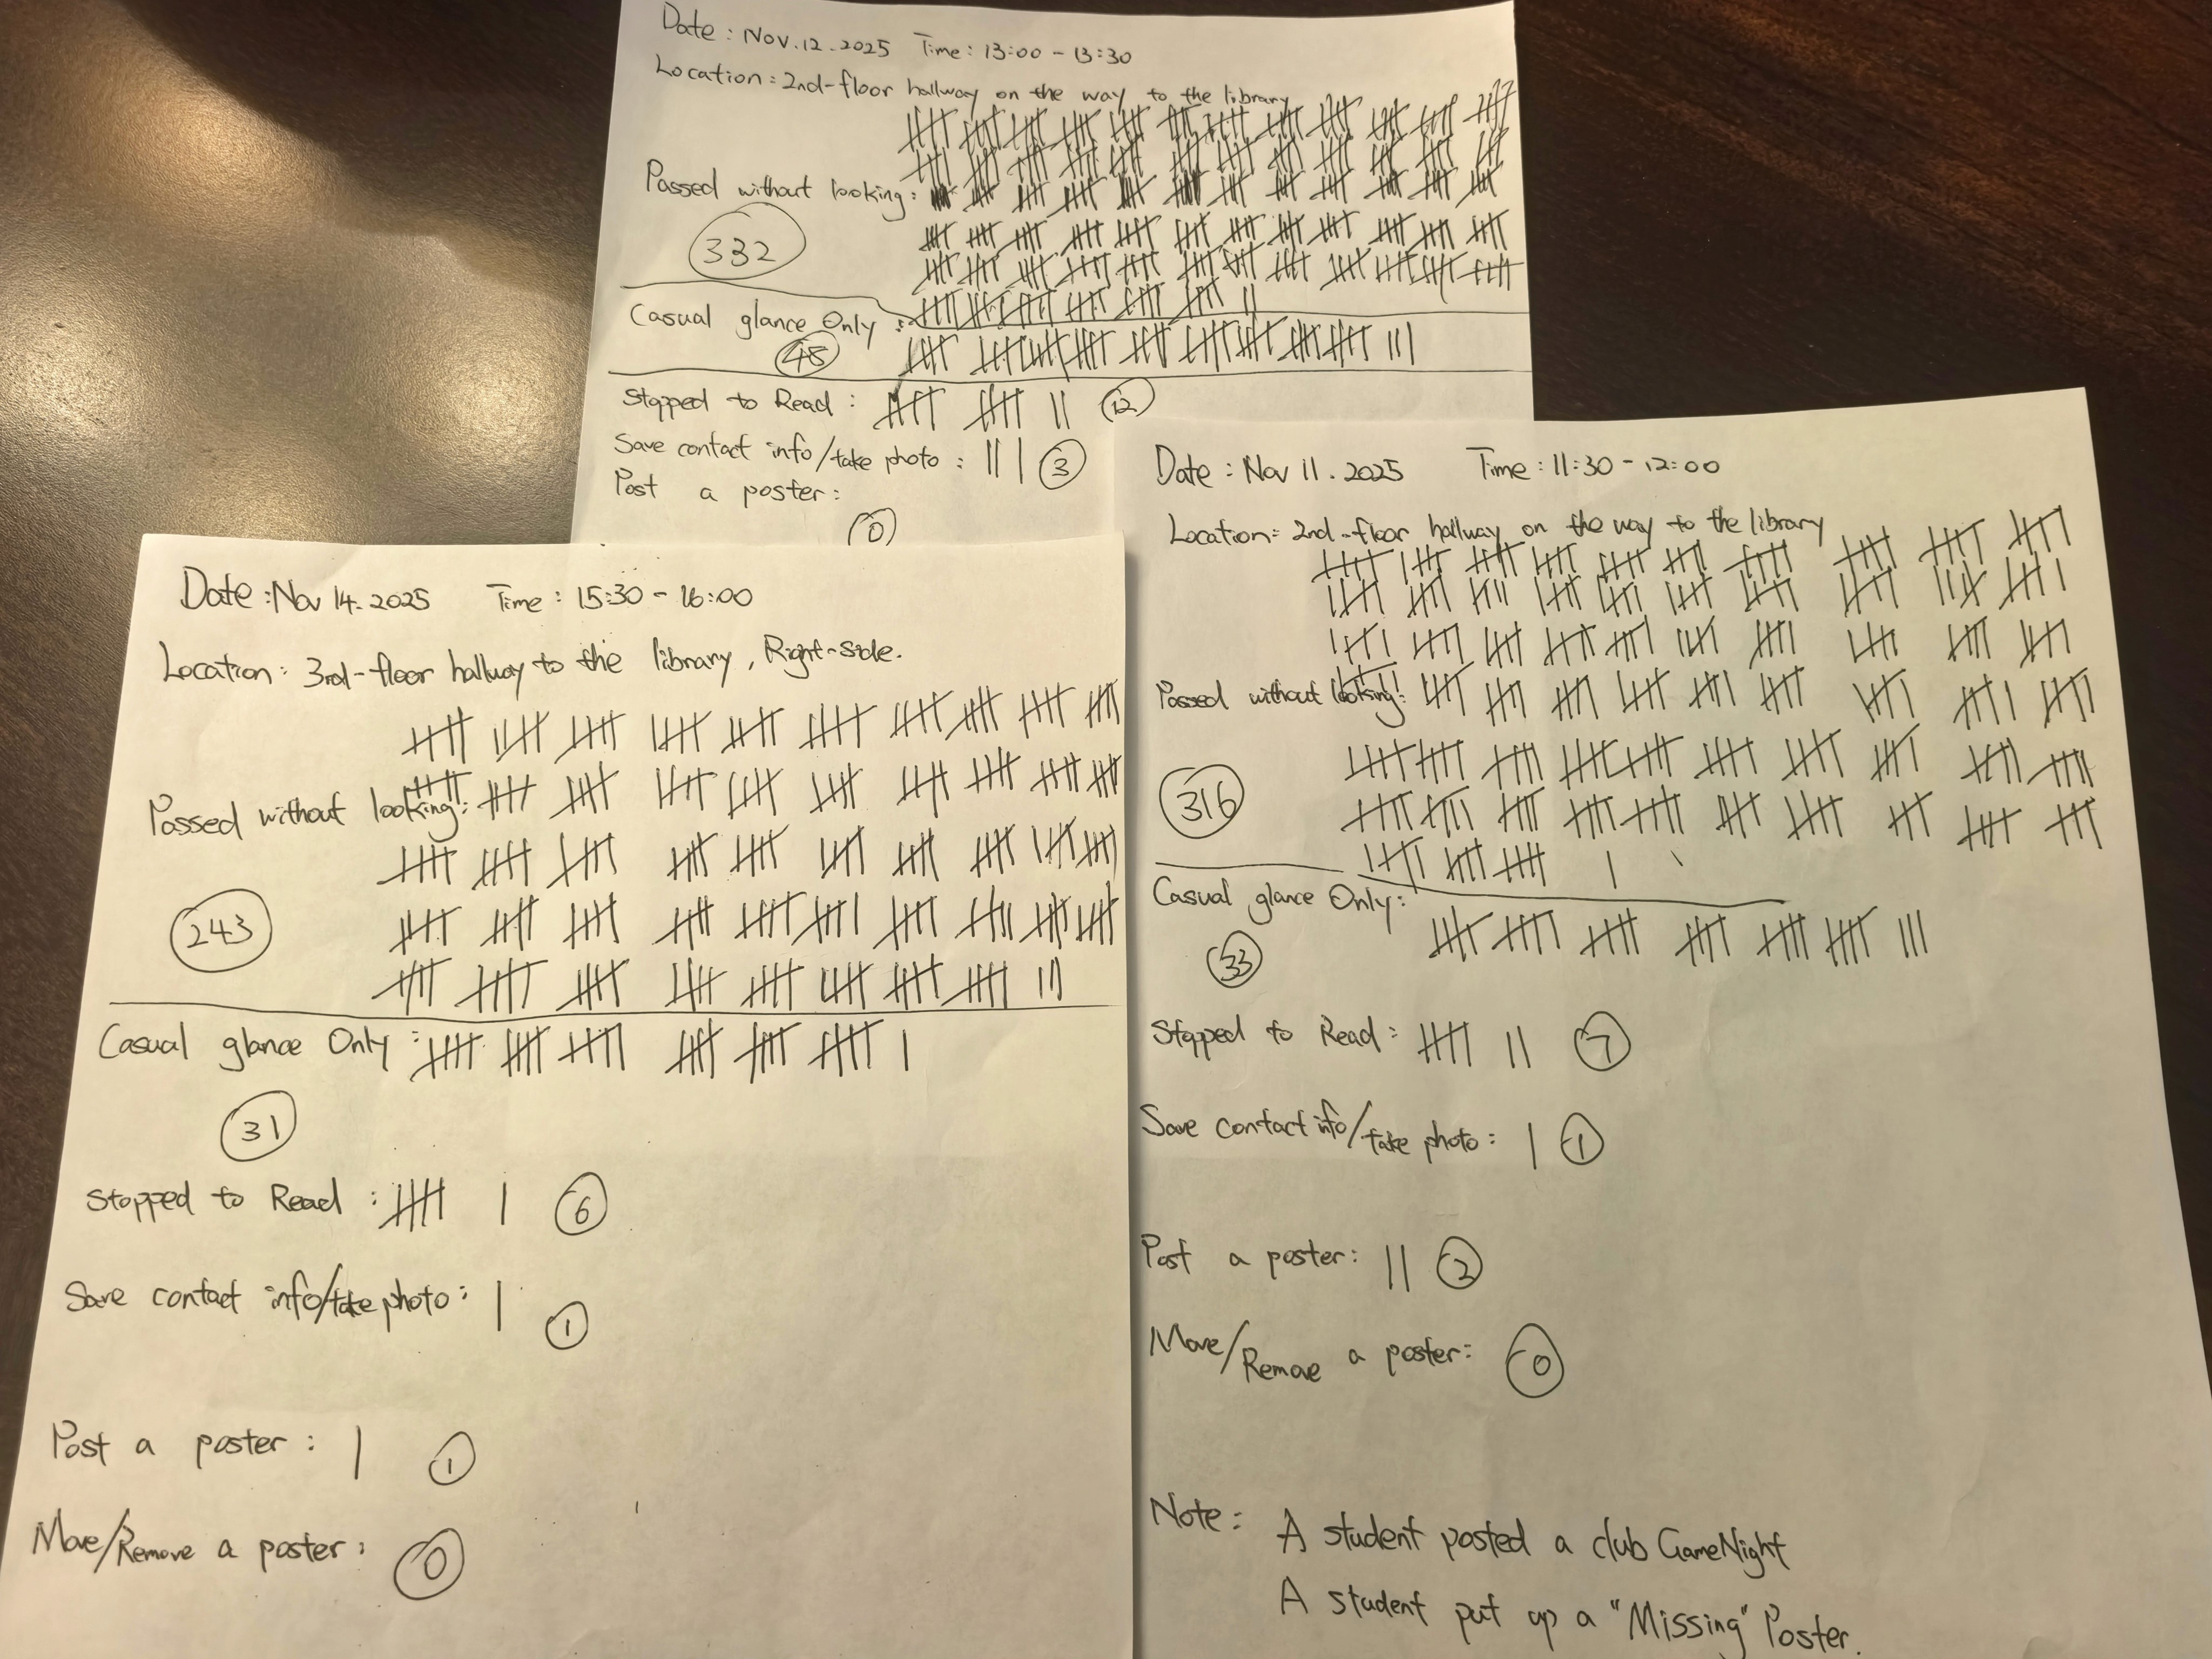 Date : Nov. 12. 2025 Time : 13:00 - 13:30
Location : 2nd-floor hallway on the way to the library
Passed without looking :
332
Casual glance Only :
48
Stopped to Read : 12
Save contact info/take photo : 3
Post a poster :
0
Date : Nov 14. 2025 Time : 15:30 - 16:00
Location : 3rd-floor hallway to the library, Right-side.
Passed without looking :
243
Casual glance Only :
31
Stopped to Read : 6
Save contact info/take photo :
1
Post a poster : 1
Move/Remove a poster : 0
Date : Nov 11. 2025 Time : 11:30 - 12:00
Location : 2nd-floor hallway on the way to the library
Passed without looking :
316
Casual glance Only :
33
Stopped to Read : 7
Save contact info/take photo : 1
Post a poster : 2
Move/Remove a poster : 0
Note : A student posted a club GameNight
A student put up a "Missing" Poster.